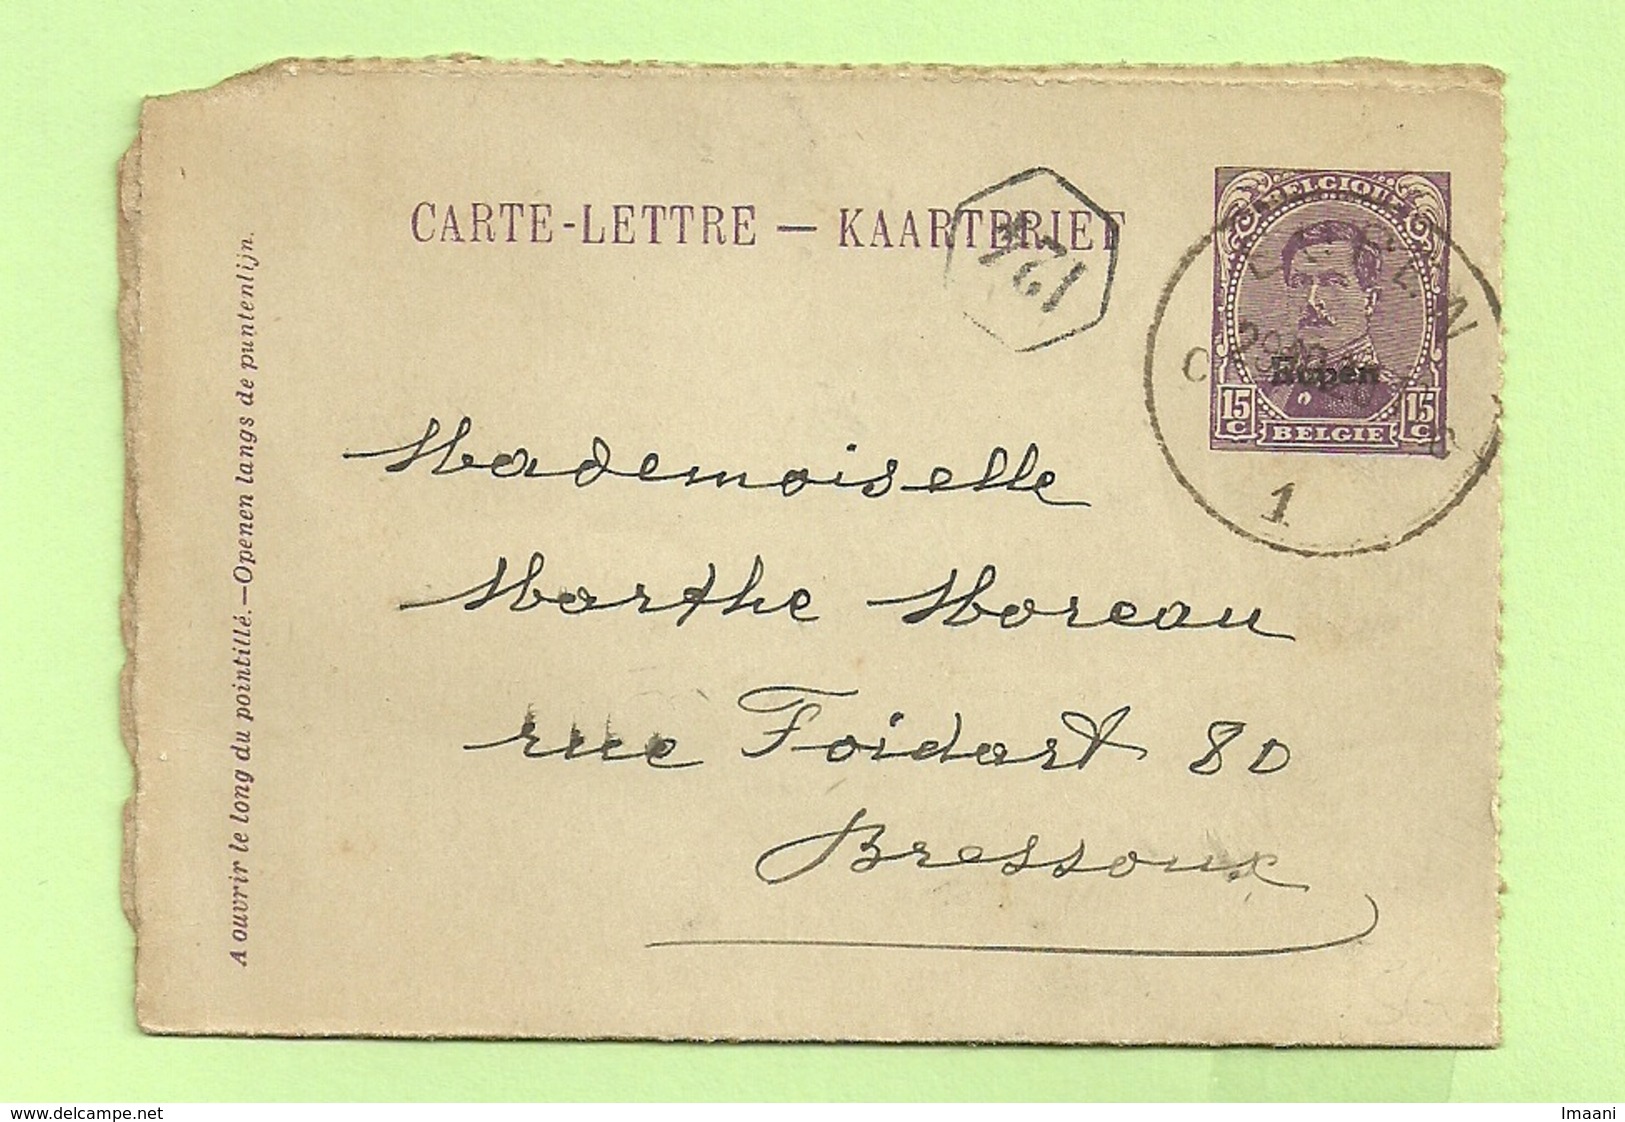 CARTE-LETTRE — KAARTBRIEF
BELGIQUE
Eupen
15 C
BELGIE
15 C
1
Mademoiselle
Marthe Moreau
rue Foidart 80
Bressoux
A ouvrir le long du pointillé.—Openen langs de puntenlijn.
www.delcampe.net
Imaani